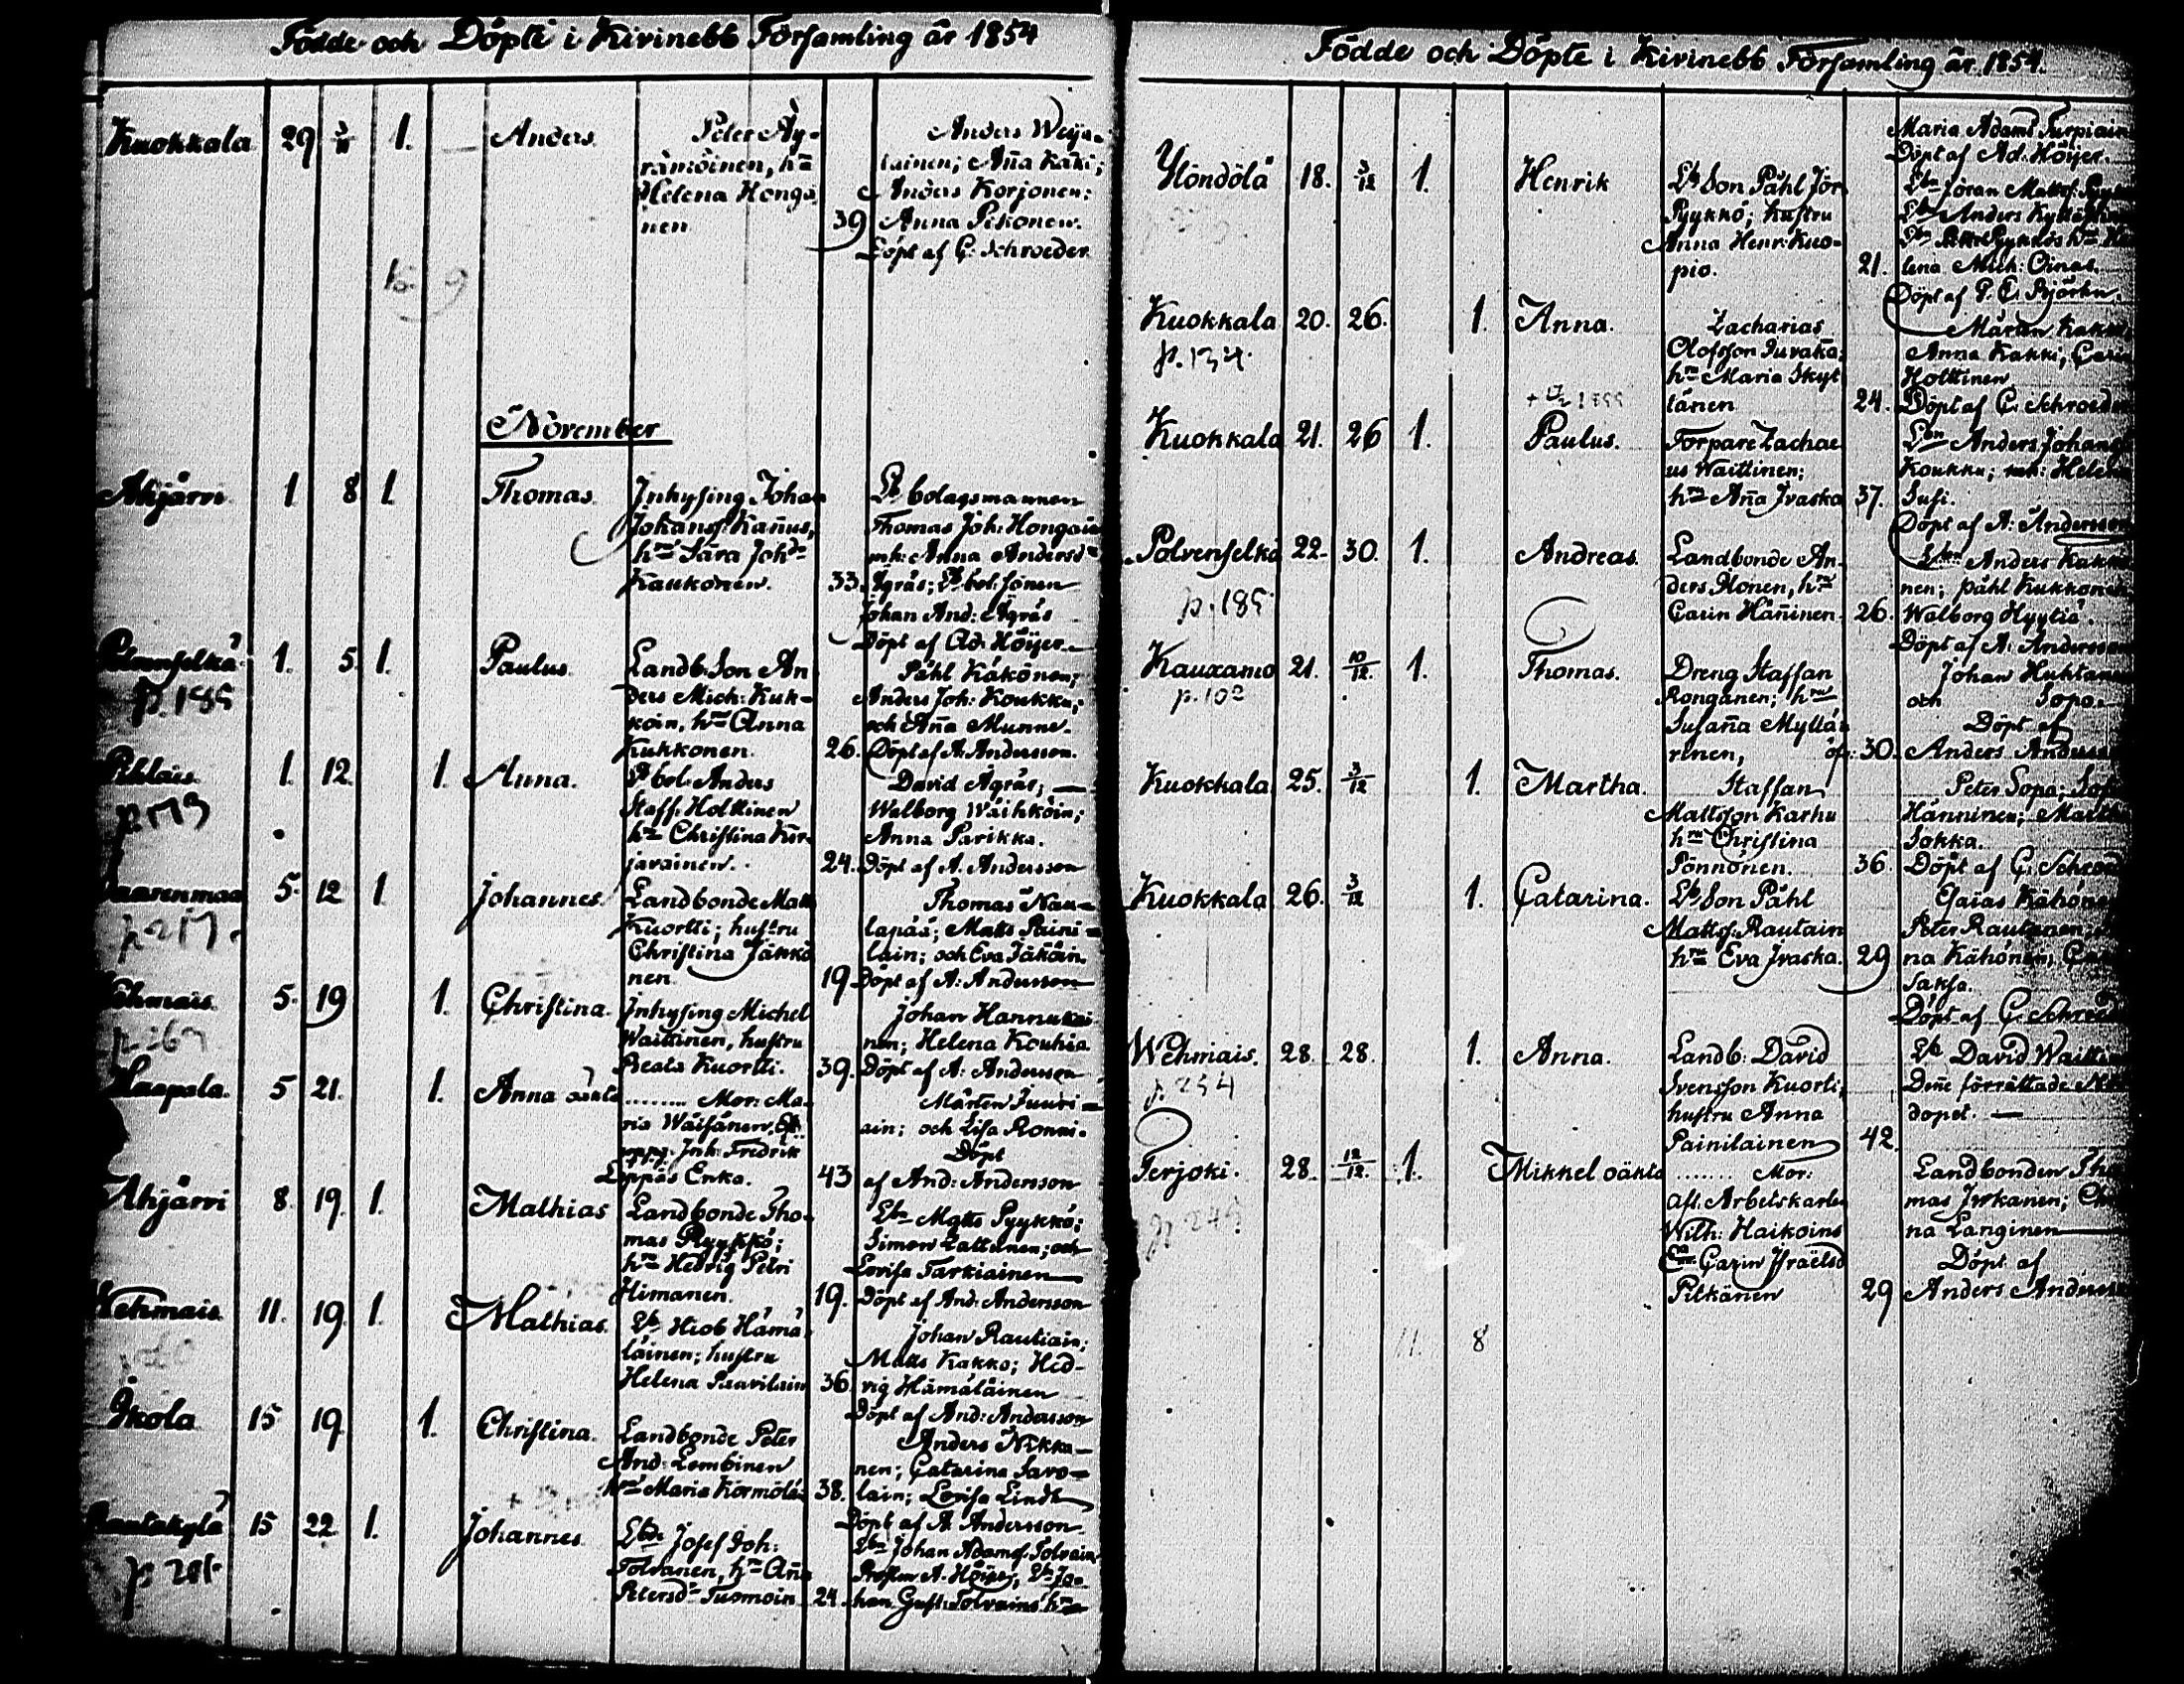 Födde och Döpte i Kivinebb Församling år 1854
Kuokkala 29 3/11 1. — Anders. Peter Äy-
rämöinen, hn
Helena Hongo
nen 39
Anders Weija-
lainen; Aña Kaki;
Anders Korjonen;
Anna Pekonen.
Döpt af G: Schroeder.
15. 9
November
Ahjärvi 1 8 1. Thomas. Inhysing Johan
Johansſ: Kañus,
hru Sara Johdr
Kaukonen. 33.
Lb bolagsmannen
Thomas Joh: Hongain
mh: Anna Andersdr
Ägräs; Lb bol: sonen
Johan And: Ägräs
Döpt af Ad: Höijer.
Polvenselkä 1. 5. 1. Paulus. Landb: Son An
p. 185
ders Mich: Kuk-
koin, hru Anna
Kukkonen. 26.
Påhl Käkönen;
Anders Joh: Koukku;
och Aña Munne.
Döpt af A: Andersson.
Pihlais 1. 12. 1. Anna. Lb bol: Anders
Staff: Holttinen
hru Christina Kur-
javainen. 24.
David Ägräs; —
Walborg Wäihköin;
Anna Parikka.
Döpt af A. Andersson
5. 12 1. Johannes. Landbonde Matts
p 217
Kuortti; hustru
Christina Jäkkö
nen 19
Thomas Nau-
lapää; Matts Paini-
lain; och Eva Jäkäin.
Döpt af A: Andersson
Wehmais 5. 19 1. Christina. Inhysing Michel
Waittinen, hustru
Beata Kuortti. 39.
Johan Hannukai
nen; Helena Kouhia.
Döpt af A: Andersson
Haapala. 5 21. 1. Anna oäkta ........ Mor: Ma-
ria Wäisänen,
Joh: Fredrik
Loppas Enka. 43
Mårten Juuri-
ain; och Lisa Ronni.
Döpt
af And: Andersson
Ahjärvi 8. 19. 1. Mathias Landbonde Tho-
mas Pyykkö;
hru Hedvig Petri
Himanen. 19.
Lbn Matts Pyykkö;
Simon Lattunen; och
Lovisa Tarkiainen
Döpt af And: Andersson
Wehmais 11. 19. 1. Mathias. Lb Hiob Hämä-
läinen; hustru
Helena Paavilain 36.
Johan Rautiain;
Matts Kakko; Hed-
vig Hämäläinen
Döpt af And: Andersson
Ikola 15 19. 1. Christina. Landbonde Peter
And: Lembinen
hru Maria Körmölä 38.
Anders Nikka-
nen; Catarina Savo-
lain; Lovisa Lindh
Döpt af A. Andersson.
Rautakylä 15 22. 1. Johannes. Josef Joh:
Tolvanen, hru Aña
Petersdr Tuomoin 24.
Lbn Johan Adamsſ: Tolvain
A. Höijer; Lbn Jo-
han Gust: Tolvains hru
Födde och Döpte i Kivinebb Församling år 1854.
Maria Adams Turpiain
Döpt af Ad: Höijer.
Ylöndölä 18. 3/12 1. Henrik Lb Son Påhl Jör:
Pyykkö; hustru
Anna Henr: Kuo-
pio. 21.
Lbn Jöran Mattsſ:
Anders
lena Mich: Oinas.
Döpt af
Kuokkala 20. 26. 1. Anna. Zacharias
p. 134
Olofsson Juvaka;
hru Maria Skyt
tänen 24.
Mårten
Anna Kakki,
Holttinen
Döpt af G: Schroeder
Kuokkala 21. 26 1. Paulus. Torpare Zachae
us Waittinen;
hru Aña Ivaska 37.
Lbn Anders Johans
Koukku; Helena
Susi.
Döpt af A: Andersson
Polvenselkä 22. 30. 1. Andreas. Landbonde An-
p. 185
ders Ilonen, hru
Carin Häñinen. 26.
Anders
nen; påhl Kukkonen
Walborg Hyytiä.
Döpt af A: Andersson
Kauxamo 21. 10/12. 1. Thomas. Dreng Staffan
Ronganen; hru
Susaña Myllä-
rinen, 30.
Johan Huhtanen
och Sopo.
Döpt af
Anders Andersson
Kuokkala 25. 3/12 1. Martha. Staffan
Mattsson Karhu
hru Christina
Pönnönen. 36.
Peter Sopa;
Hänninen; Martha
Sokka.
Döpt af G: Schroeder
Kuokkala 26. 3/12 1. Catarina. Lb Son Påhl
Mattsſ: Rautain
hru Eva Ivaska. 29
Esaias Kähönen
Peter Rautanen,
na Kähönen;
Saksa.
Döpt af G: Schroeder
Wehmais. 28. 28. 1. Anna. Landb: David
p. 254
Svensson Kuorti;
hustru Anna
Painilainen 42.
Lb David Waittinen
Deñe förrättade Nöd
dopet. —
Terjoki. 28. 12/12. 1. Mikkel oäkta ........ Mor:
p 249
afl: Arbetskarlen
Wilh: Haikoins
Carin Israëlsd
Pitkänen 29
Landbonden Tho
mas Jyrkanen;
na Langinen
Döpt af
Anders Andersson
11. 8